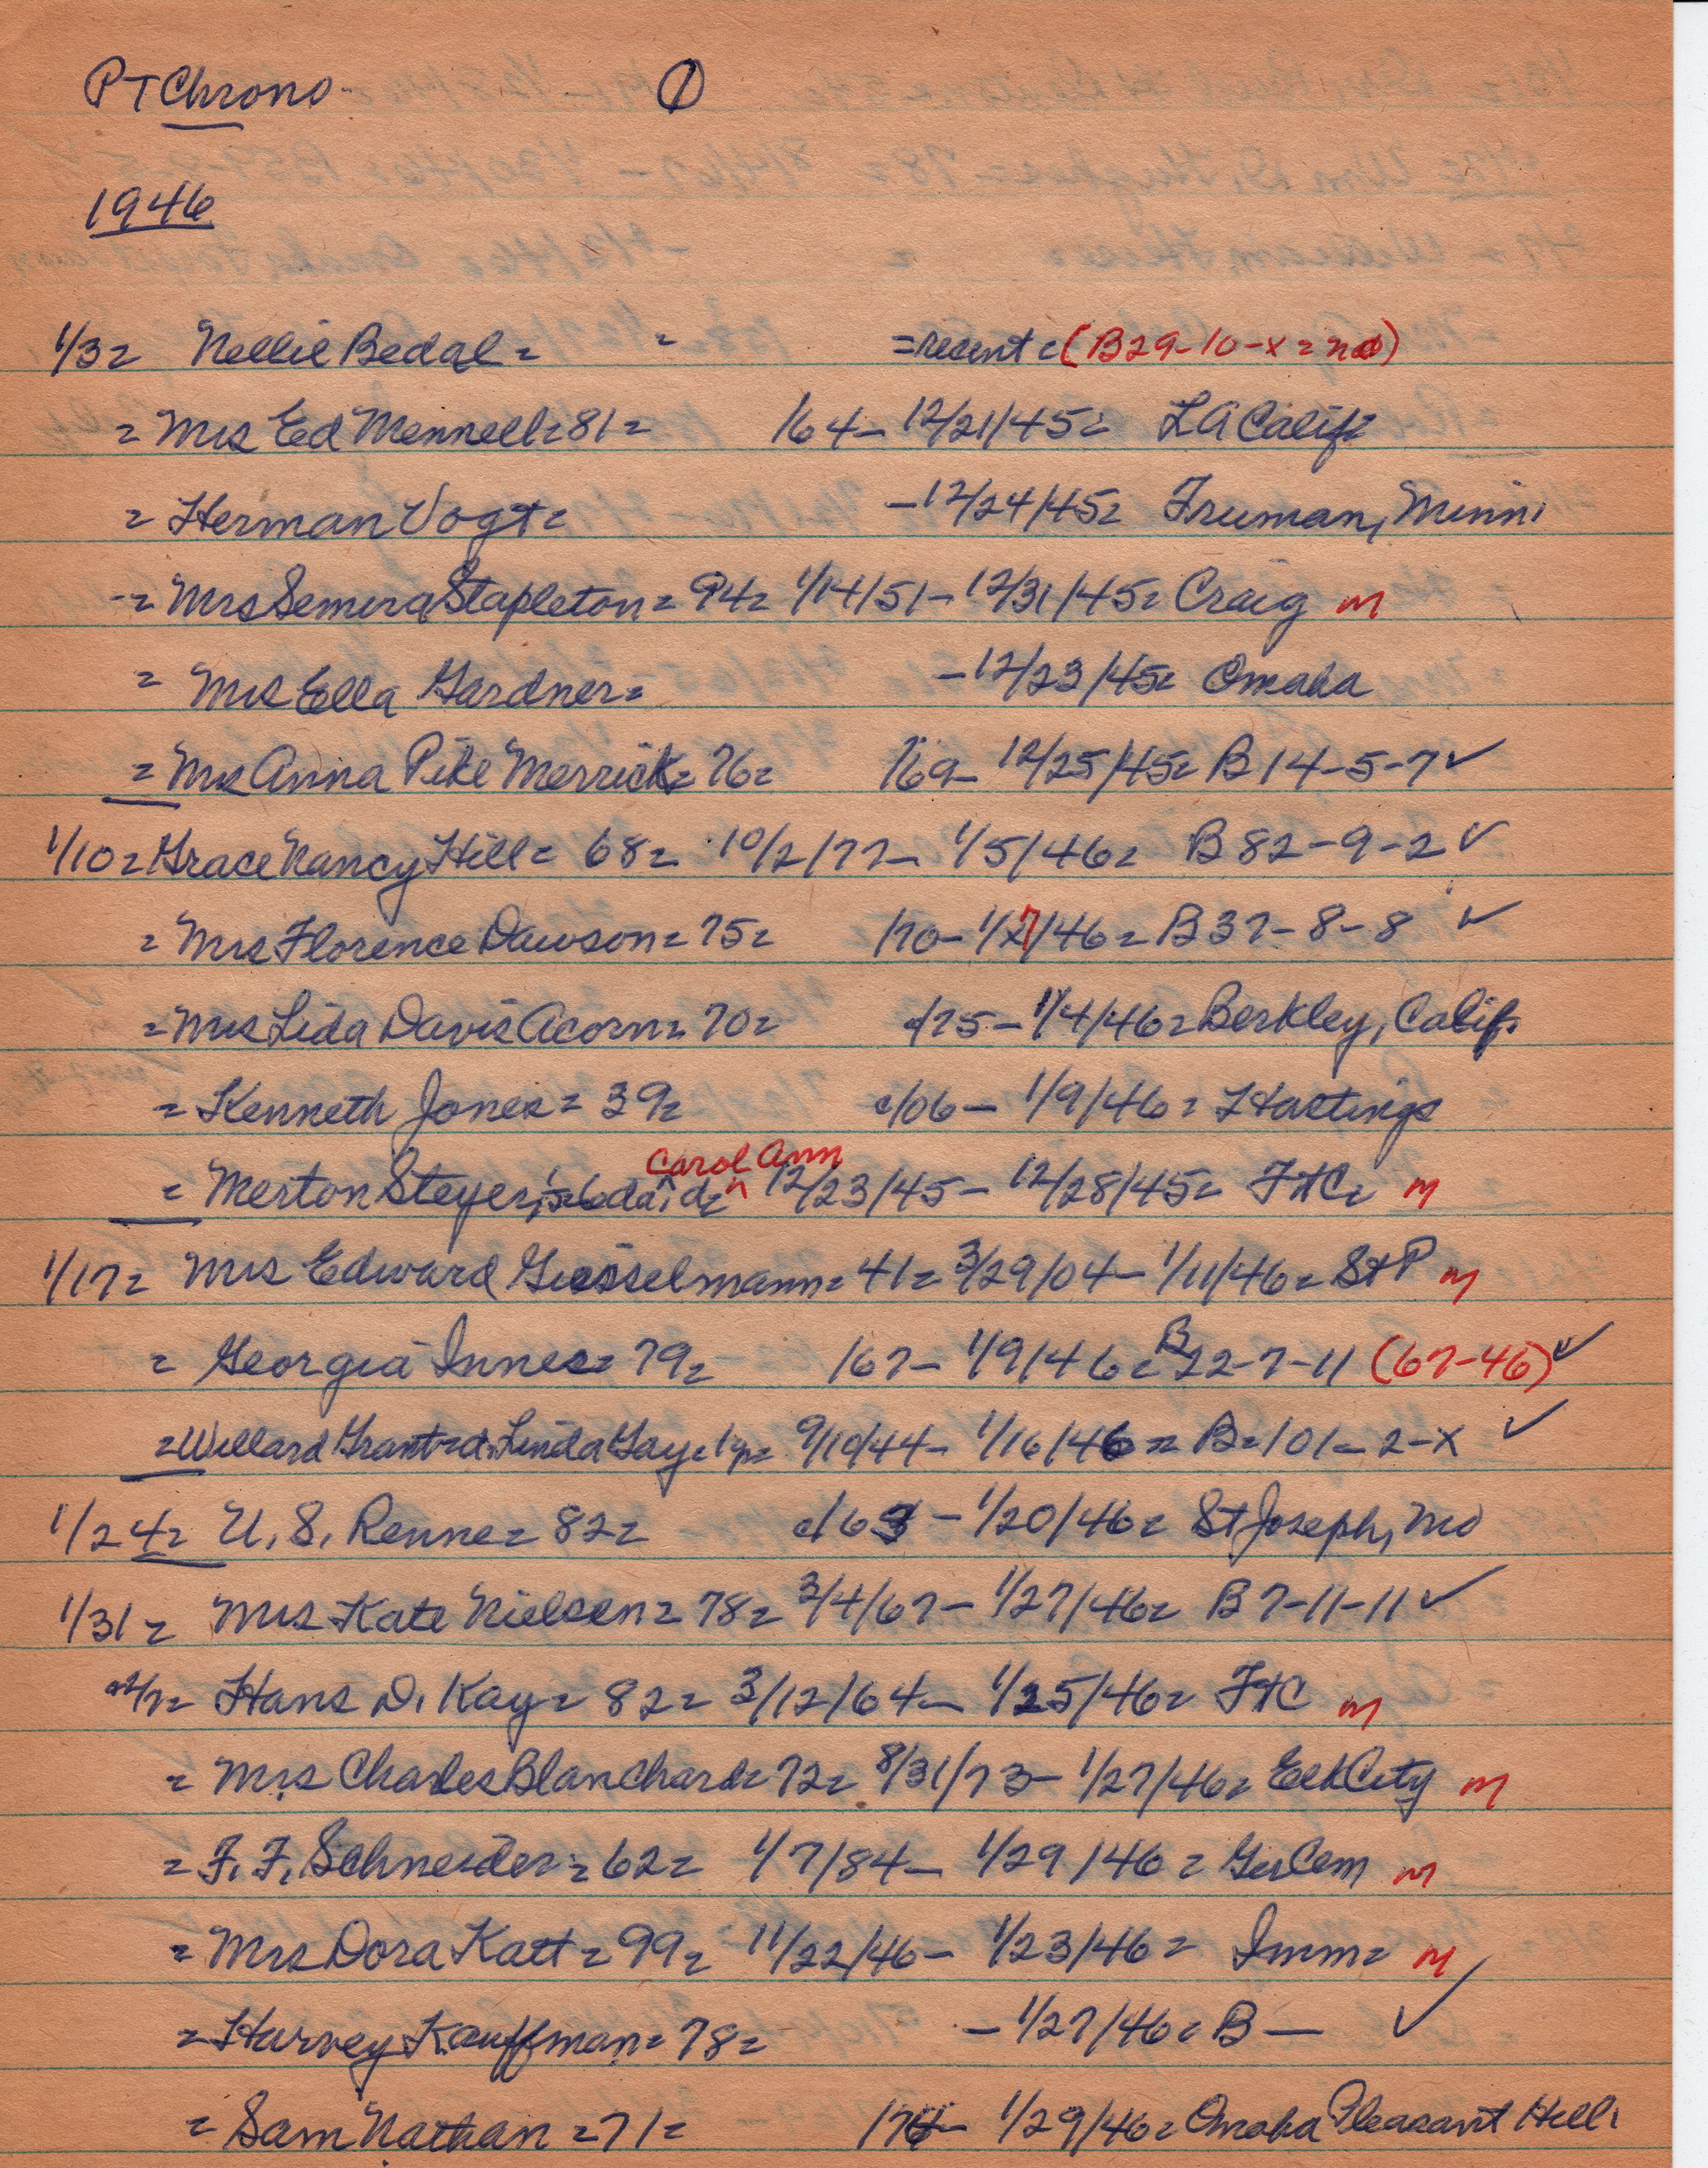 PT Chrono. 1
1946
1/3= Nellie Bedal= = =recent=(B29-10-x=nd)
=Mrs Ed Mennell=81= /64- 12/21/45= LA Calif=
=Herman Vogt= -12/24/45= Truman, Minn.
-=Mrs Semira Stapleton=94= 1/14/51-12/31/45= Craig M
= Mrs Ella Gardner= -12/23/45= Omaha
=Mrs Anna Pike Merrick=76= /69- 12/25/45= B14-5-7✓
1/10=Grace Nancy Hill= 68= 10/2/77- 1/5/46= B82-9-2✓
=Mrs Florence Dawson=75= /70- 1/7/46= B37-8-8 ✓
=Mrs Lida Davis Acorn=70= c/75-1/4/46=Berkley, Calif.
=Kenneth Jones=39= c/06- 1/9/46= Hastings
Carol Ann
=Merton Steyer, 6da, d= ^ 12/23/45-12/28/45= FtC= M
1/17= Mrs Edward Giesselmann=41=3/29/04-1/11/46= StP M
= Georgia Innes=79= /67- 1/9/46= B22-7-11 (67-46)✓
=Willard Grant=d.Linda Gay=1y= 9/10/44-1/16/46= B=101-2-x ✓
1/24= U. S. Renne=82= c/63 -1/20/46= St Joseph, Mo
1/31= Mrs Kate Nielsen=78=3/4/67-1/27/46= B7-11-11✓
2/7= Hans D. Kay= 82= 3/12/64- 1/25/46= FtC M
= Mrs Charles Blanchard=72= 8/31/73-1/27/46= Elk City M
= F. F. Schneider=62= 1/7/84- 1/29/46= Ger Cem M
=Mrs Dora Katt=99= 11/22/46- 1/23/46= Imm= M
=Harvey Kauffman=78= -1/27/46= B— ✓
= Sam Nathan=71= /74- 1/29/46= Omaha Pleasant Hill.